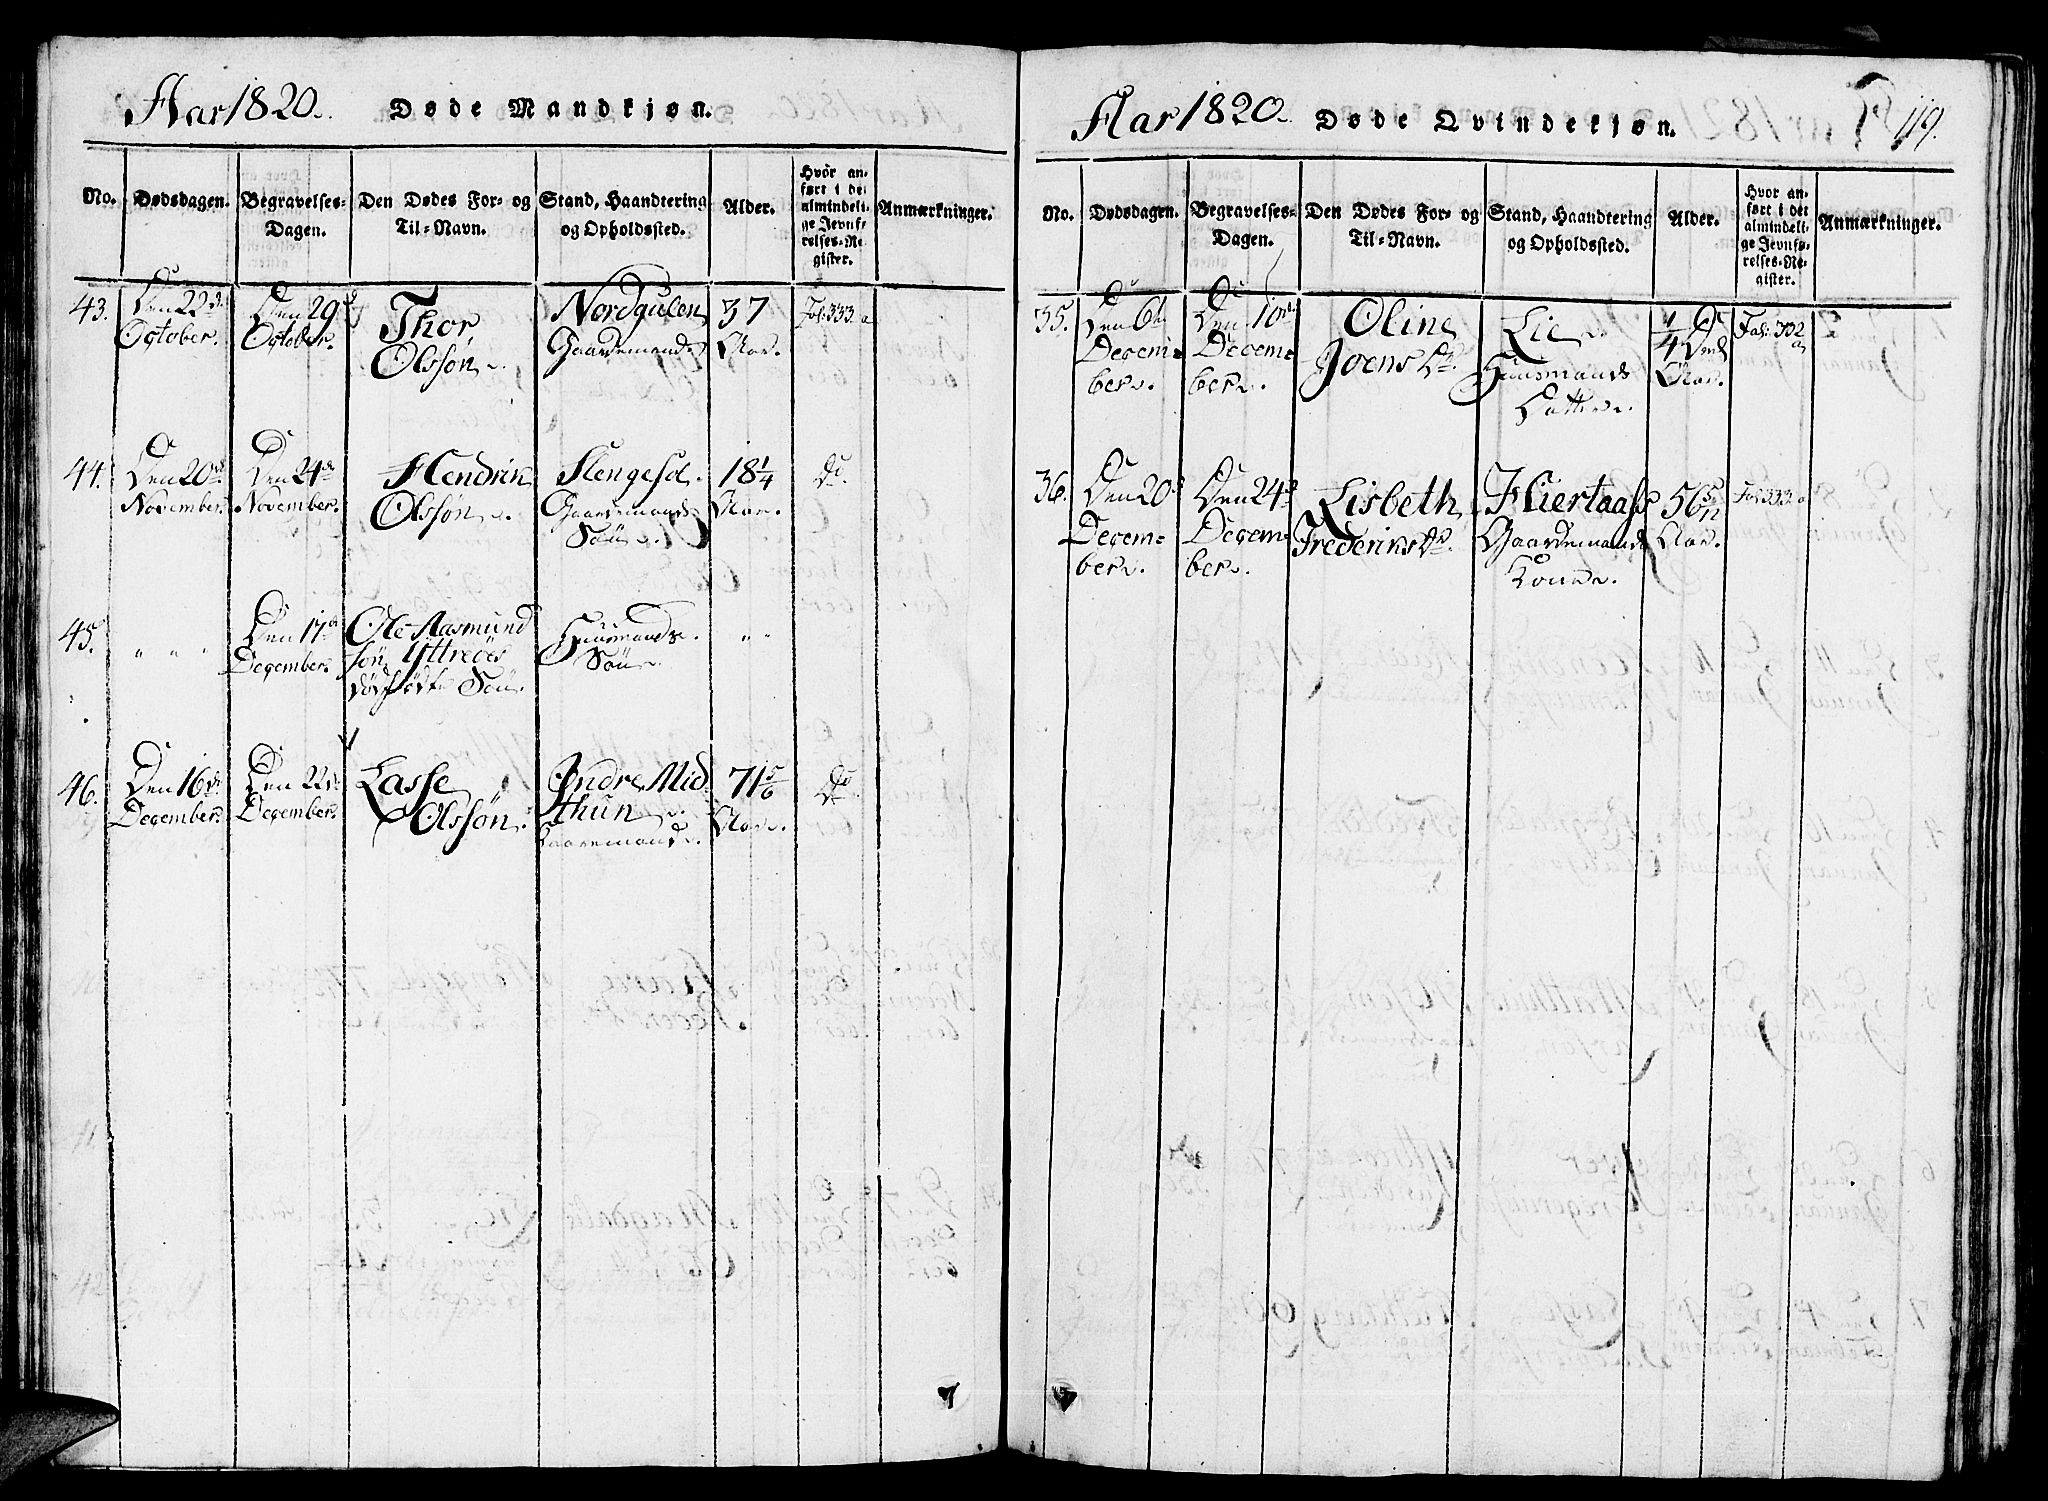 Aar 1820. Døde Mandkjøn.
No. Dødsdagen. Begravelses-Dagen. Den Dødes For- og Til-Navn. Stand, Haandtering og Opholdssted. Alder. Hvor anført i det almindelige Jevnførelses-Register. Anmærkninger.
43. Den 22de Den 29de Thor Nordgulen 37 Fol. 333. a
October. October. Olssøn Gaardemand Aar.
44. Den 20de Den 24de Hendrik Slengesol. 18 1/4 do.
November. November. Olssøn Gaardemands Aar.
Søn
45. " " " Den 17de Ole Rasmund Huusmands " "
December. søn Yttreøes Søn
dødfødte Søn
46. Den 16de Den 22de Lasse Indre Mid 71 5/6 do.
December. December. Olssøn. thun Aar.
Gaardemand.
Aar 1820. Døde Qvindekjøn. 119.
No. Dødsdagen. Begravelses-Dagen. Den Dødes For- og Til-Navn. Stand, Haandtering og Opholdssted. Alder. Hvor anført i det almindelige Jevnførelses-Register. Anmærkninger.
35. Den 6te Den 10de Oline Lie 1/4 Deel Fol. 332
Decem= Decem= Joens Dr. Huusmands Aar. a
ber. ber. Datter.
36. Den 20de Den 24de Lisbeth Hiertaass 56 5/12 Fol. 333. a
Decem= Decem= Frederiks Dr. Gaardemands Aar.
ber. ber. Kone.